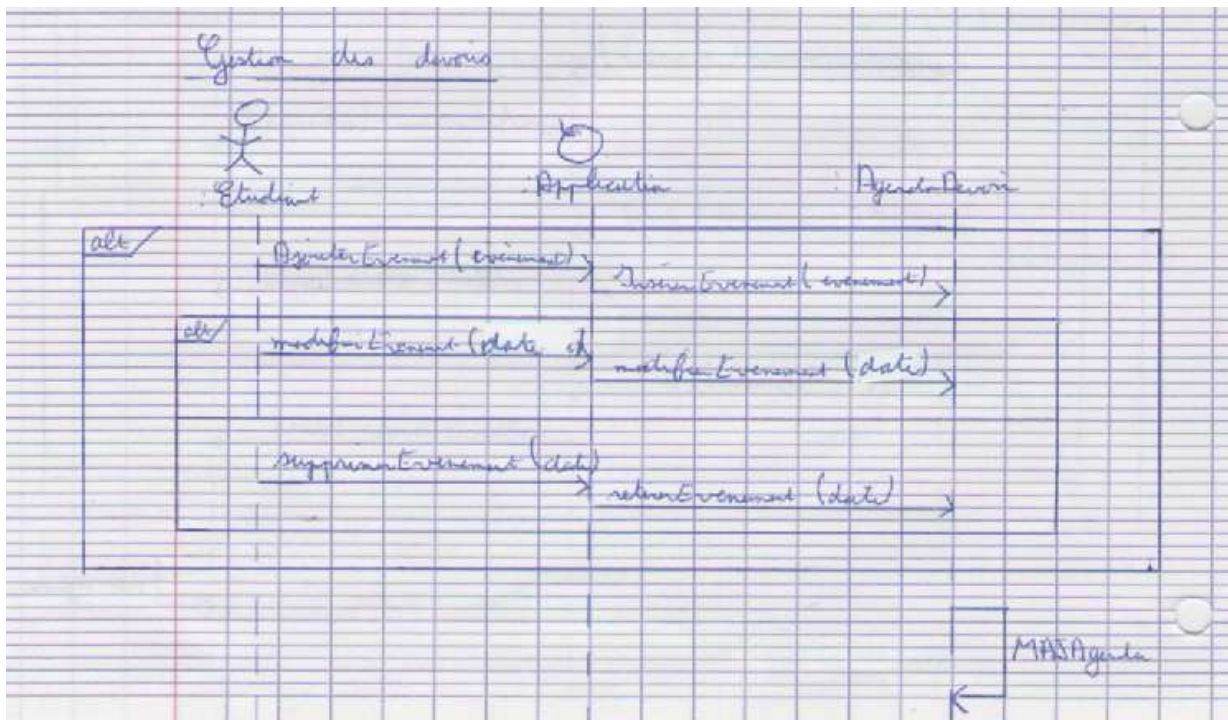 Gestion des devoirs
: Etudiant
: Application
: AgendaDevoir
alt
AjouterEvenement (evenement)
InsererEvenement (evenement)
alt
modifierEvenement (date
modifierEvenement (date)
supprimerEvenement (date)
retirerEvenement (date)
MAJAgenda